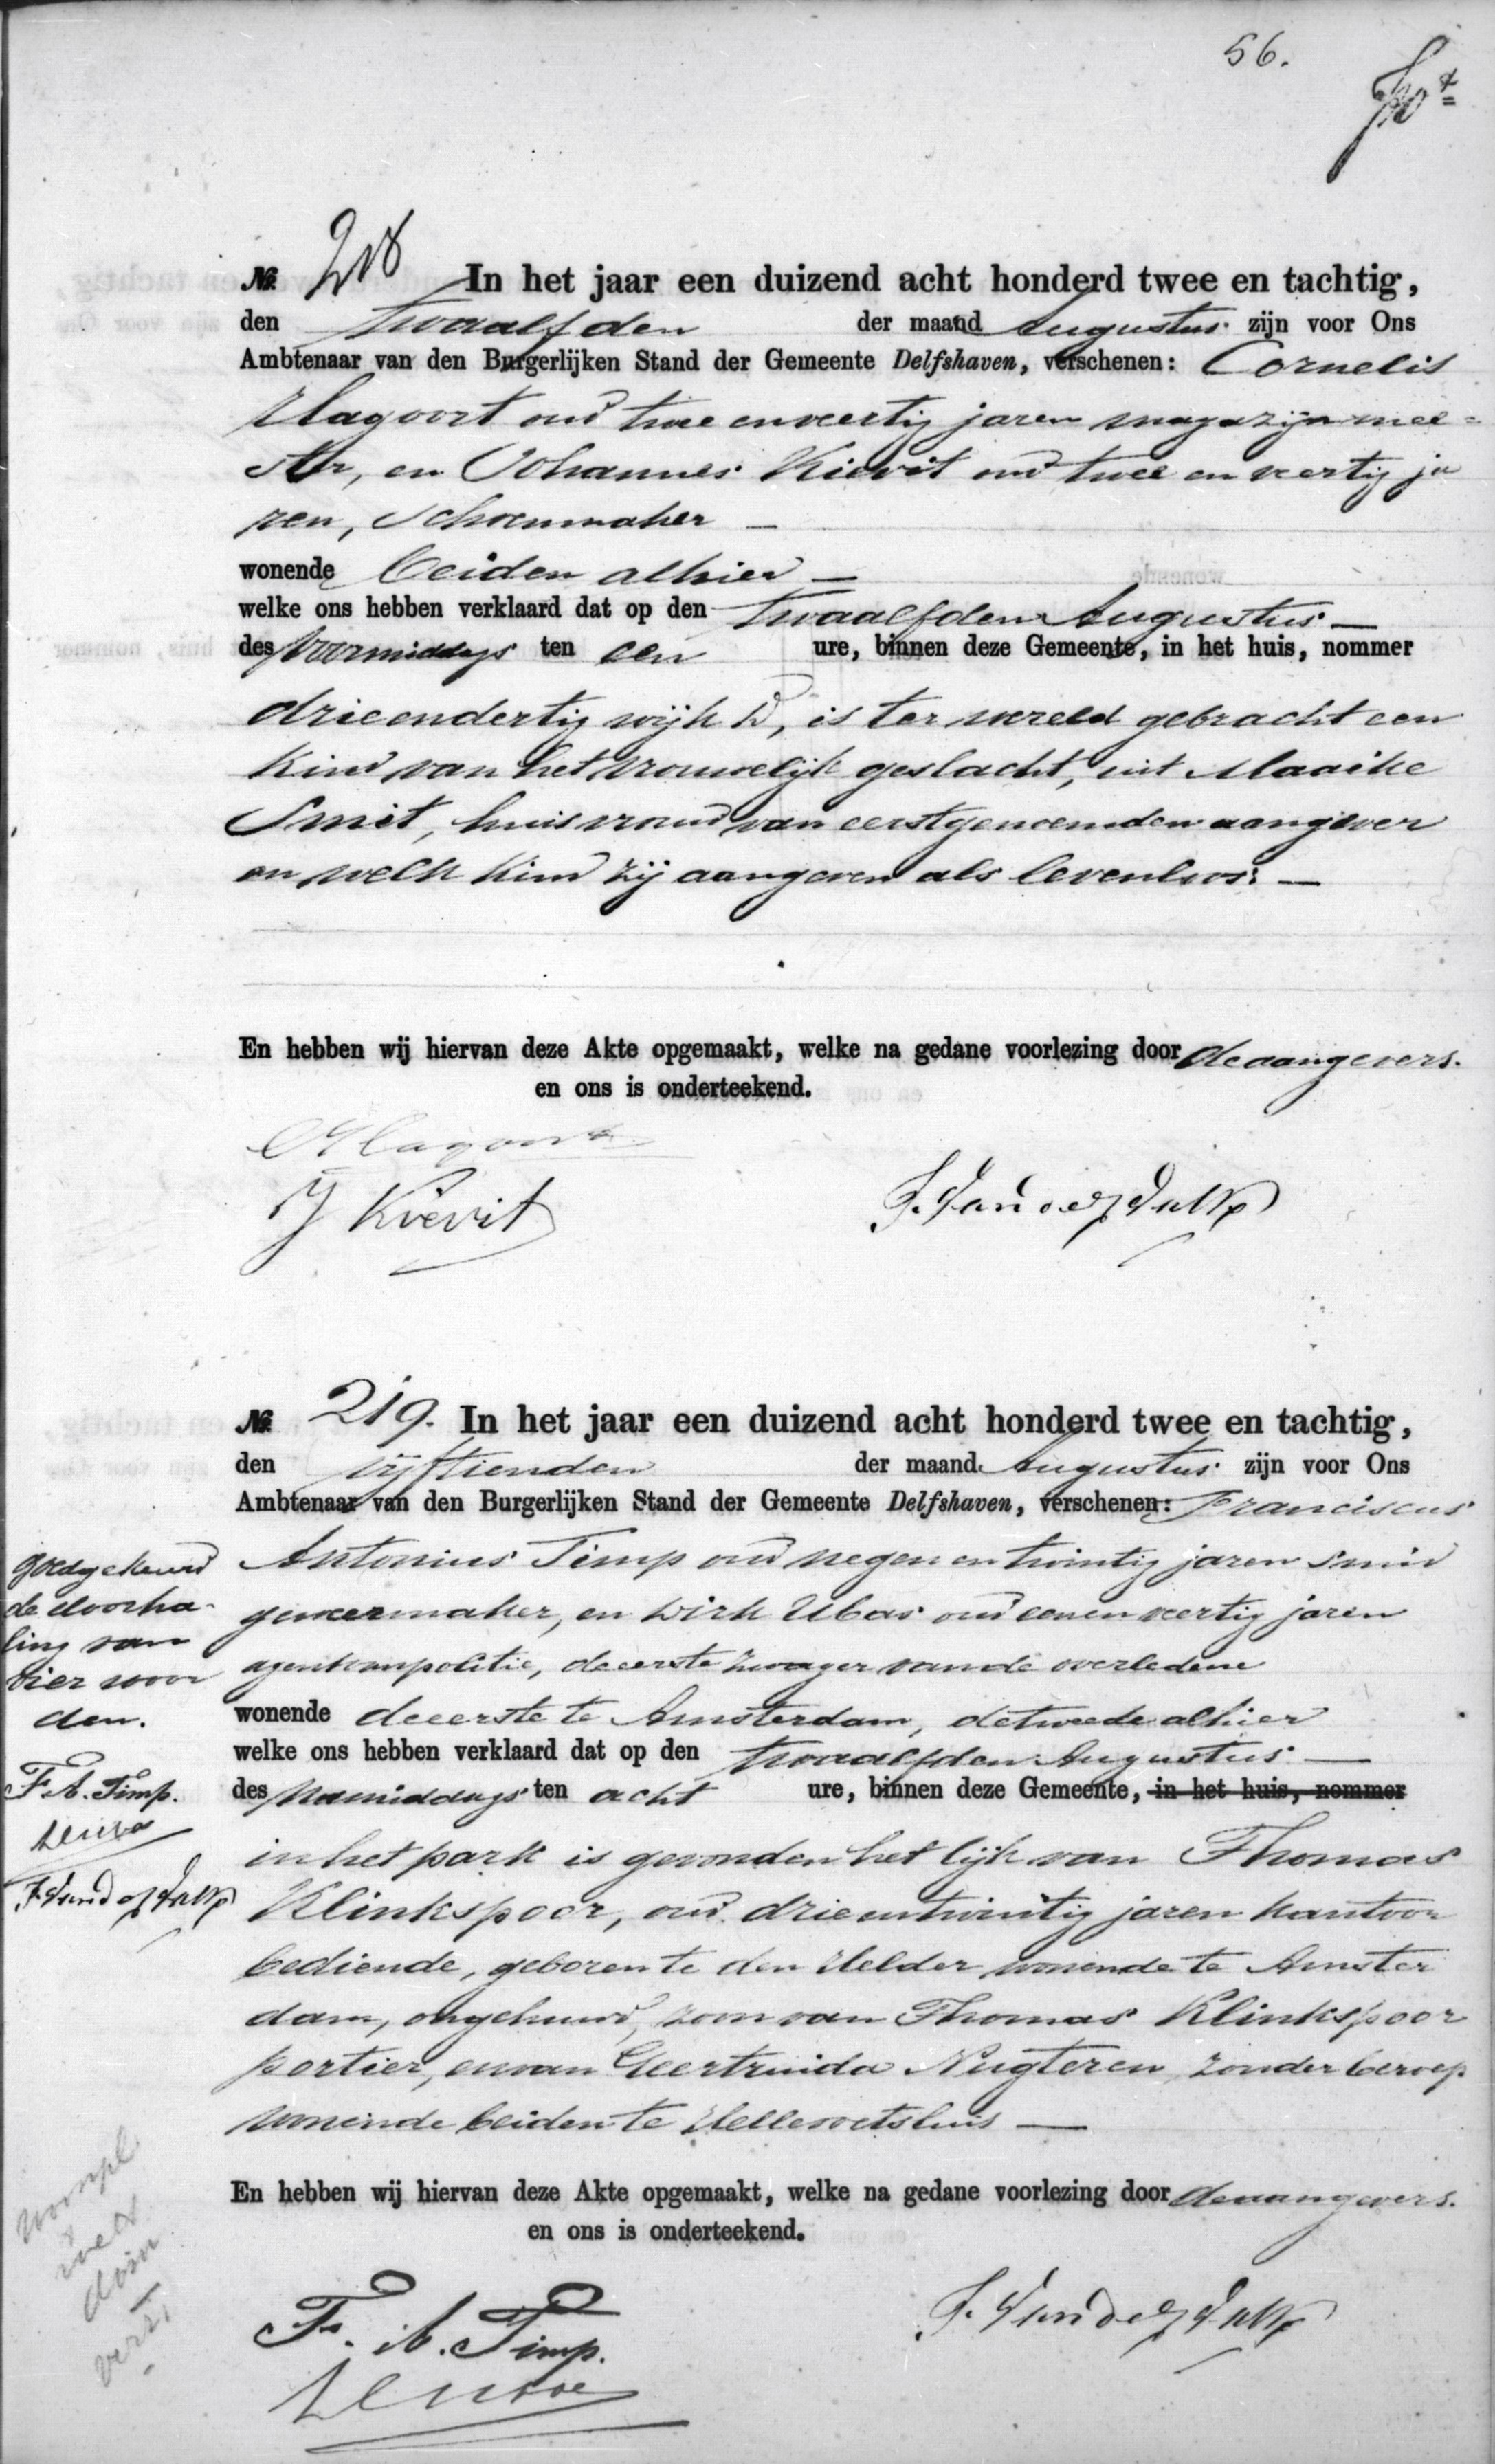 56.
No. 218 In het jaar een duizend acht honderd twee en tachtig,
den twaalfden der maand Augustus zijn voor Ons
Ambtenaar van den Burgerlijken Stand der Gemeente Delfshaven, verschenen: Cornelis
Hagoort oud twee en veertig jaren magazijn mee=
ster, en Johannes Kievit oud twee en veertig ja
ren, schoenmaker —
wonende beiden alhier —
welke ons hebben verklaard dat op den twaalfden Augustus —
des voormiddags ten een ure, binnen deze Gemeente, in het huis, nommer
drieendertig wijk D, is ter wereld gebracht een
kind van het vrouwelijk geslacht, uit Maaike
Smit, huisvrouw van eerstgenoemden aangever
en welk kind zij aangeven als levenloos. —
En hebben wij hiervan deze Akte opgemaakt, welke na gedane voorlezing door de aangevers.
en ons is onderteekend.
C Hagoort
J Kievit
J. van der Valk
No. 219. In het jaar een duizend acht honderd twee en tachtig,
den vijftienden der maand Augustus zijn voor Ons
Ambtenaar van den Burgerlijken Stand der Gemeente Delfshaven, verschenen: Franciscus
Antonius Timp oud negen en twintig jaren smid
geweermaker, en Dirk Ubas oud een en veertig jaren
agent van politie, de eerste zwager van de overledene
wonende de eerste te Amsterdam, de tweede alhier
welke ons hebben verklaard dat op den twaalfden Augustus —
des namiddags ten acht ure, binnen deze Gemeente, in het huis, nommer
in het park is gevonden het lijk van Thomas
Klinkspoor, oud drie en twintig jaren kantoor
bediende, geboren te den Helder wonende te Amster
dam, ongehuwd, zoon van Thomas Klinkspoor
portier, en van Geertruida Nugteren zonder beroep
wonende beiden te Hellevoetsluis —
En hebben wij hiervan deze Akte opgemaakt, welke na gedane voorlezing door de aangevers.
en ons is onderteekend.
F. A. Timp.
J. van der Valk
goedgekeurd
de doorha-
ling van
vier woor
den.
F. A. Timp.
J. van der Valk